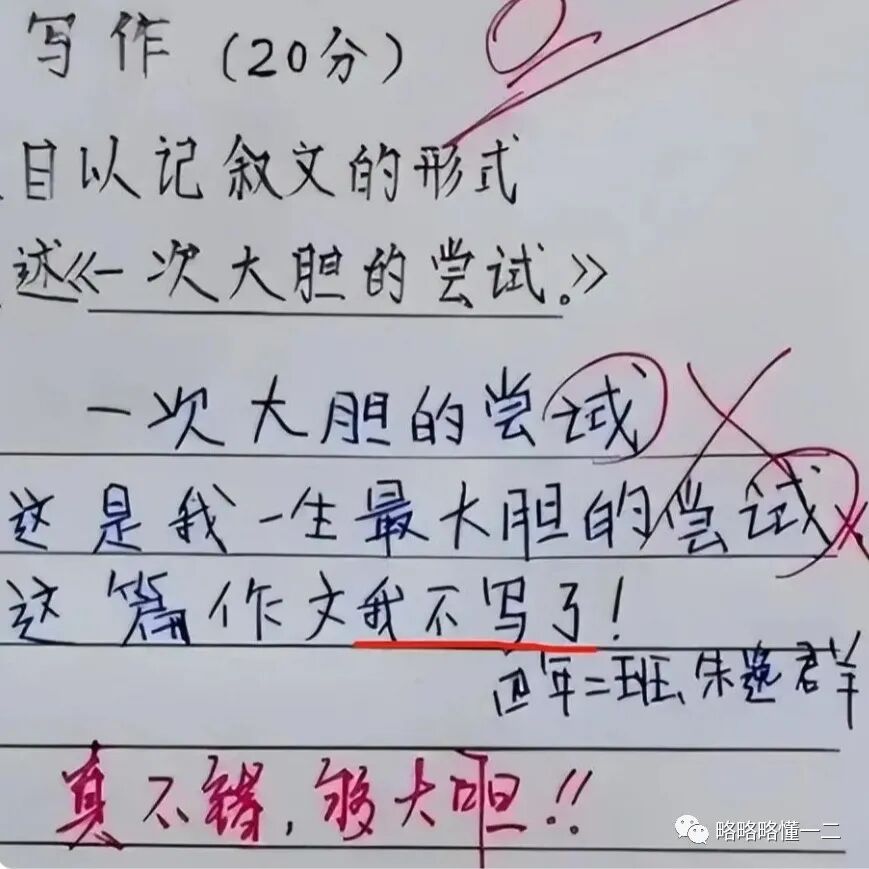 写作(20分)
目以记叙文的形式
述《一次大胆的尝试。》
一次大胆的尝试
这是我一生最大胆的尝试
这篇作文我不写了!
四年二班、朱逸群
真不错,够大胆!!
略略略懂一二